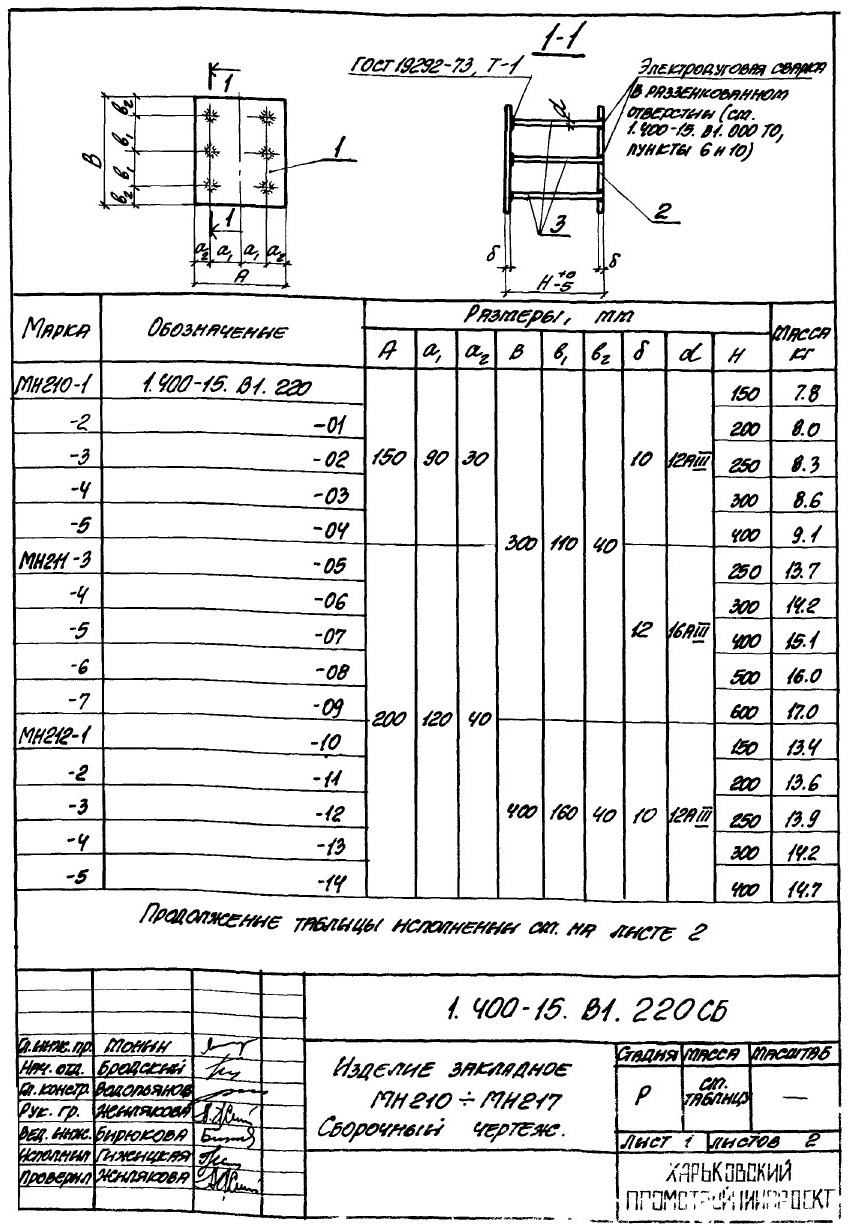 1-1
ГОСТ 19292-73, Т-1
Электродуговая сварка
в раззенкованном
отверстии (см.
1.400-15. В1. 000 ТО,
пункты 6 и 10)
1
1
1
В
в₂
в₁
в₁
в₂
а₂ а₁ а₁ а₂
А
d
3
2
δ
δ
Н +0 -5
Марка Обозначение Размеры, mm Масса кг
А а₁ а₂ В в₁ в₂ δ d Н
МН210-1 1.400-15. В1. 220 150 7.8
-2 -01 200 8.0
-3 -02 150 90 30 10 12АIII 250 8.3
-4 -03 300 8.6
-5 -04 300 110 40 400 9.1
МН211-3 -05 250 13.7
-4 -06 300 14.2
-5 -07 12 16АIII 400 15.1
-6 -08 500 16.0
-7 -09 200 120 40 600 17.0
МН212-1 -10 150 13.4
-2 -11 200 13.6
-3 -12 400 160 40 10 12АIII 250 13.9
-4 -13 300 14.2
-5 -14 400 14.7
Продолжение таблицы исполнении см. на листе 2
1. 400-15. В1. 220 СБ
Гл. инж. пр. Монин
Нач. отд. Бродский
Гл. констр. Водопьянов
Рук. гр. Жилякова
Вед. инж. Бирюкова
Исполнил Гижицкая
Проверил Жилякова
Изделие закладное
МН210 ÷ МН217
Сборочный чертеж.
Стадия Масса Масштаб
Р см. таблицу —
Лист 1 Листов 2
ХАРЬКОВСКИЙ
ПРОМСТРОЙНИИПРОЕКТ